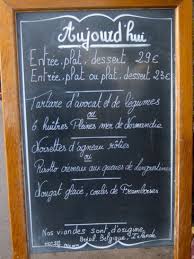 Aujourd'hui
Entrée, plat, dessert 29€
Entrée, plat ou plat, dessert 23€
Tartare d'avocat et de légumes
ou
6 huîtres Pleines mer de Normandie
Noisettes d'agneau rôties
ou
Risotto crémeux aux queues de langoustines
Nougat glacé, coulis de Framboises
Nos viandes sont d'origine
Brésil, Belgique, Irlande